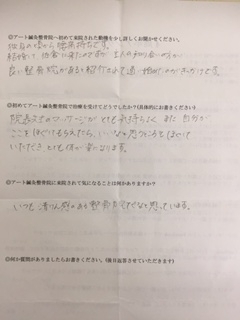 ◎アート鍼灸整骨院へ初めて来院された動機を少し詳しくお聞かせください。
独身の頃から腰痛持ちです。
結婚して
主人の知り合いの方から
良い整骨院があると紹介
◎初めてアート鍼灸整骨院で治療を受けてどうでしたか?(具体的にお書きください)
院長先生のマッサージがとても気持ちよく、また自分が
ここをほぐしてもらえたら、いいなと思うところをほぐして
いただき とても体が楽になります。
◎アート鍼灸整骨院に来院されて気になることは何かありますか?
いつも清けつ感のある整骨院だなと思っています。
◎何か質問がありましたらお書きください。(後日返答させていただきます)